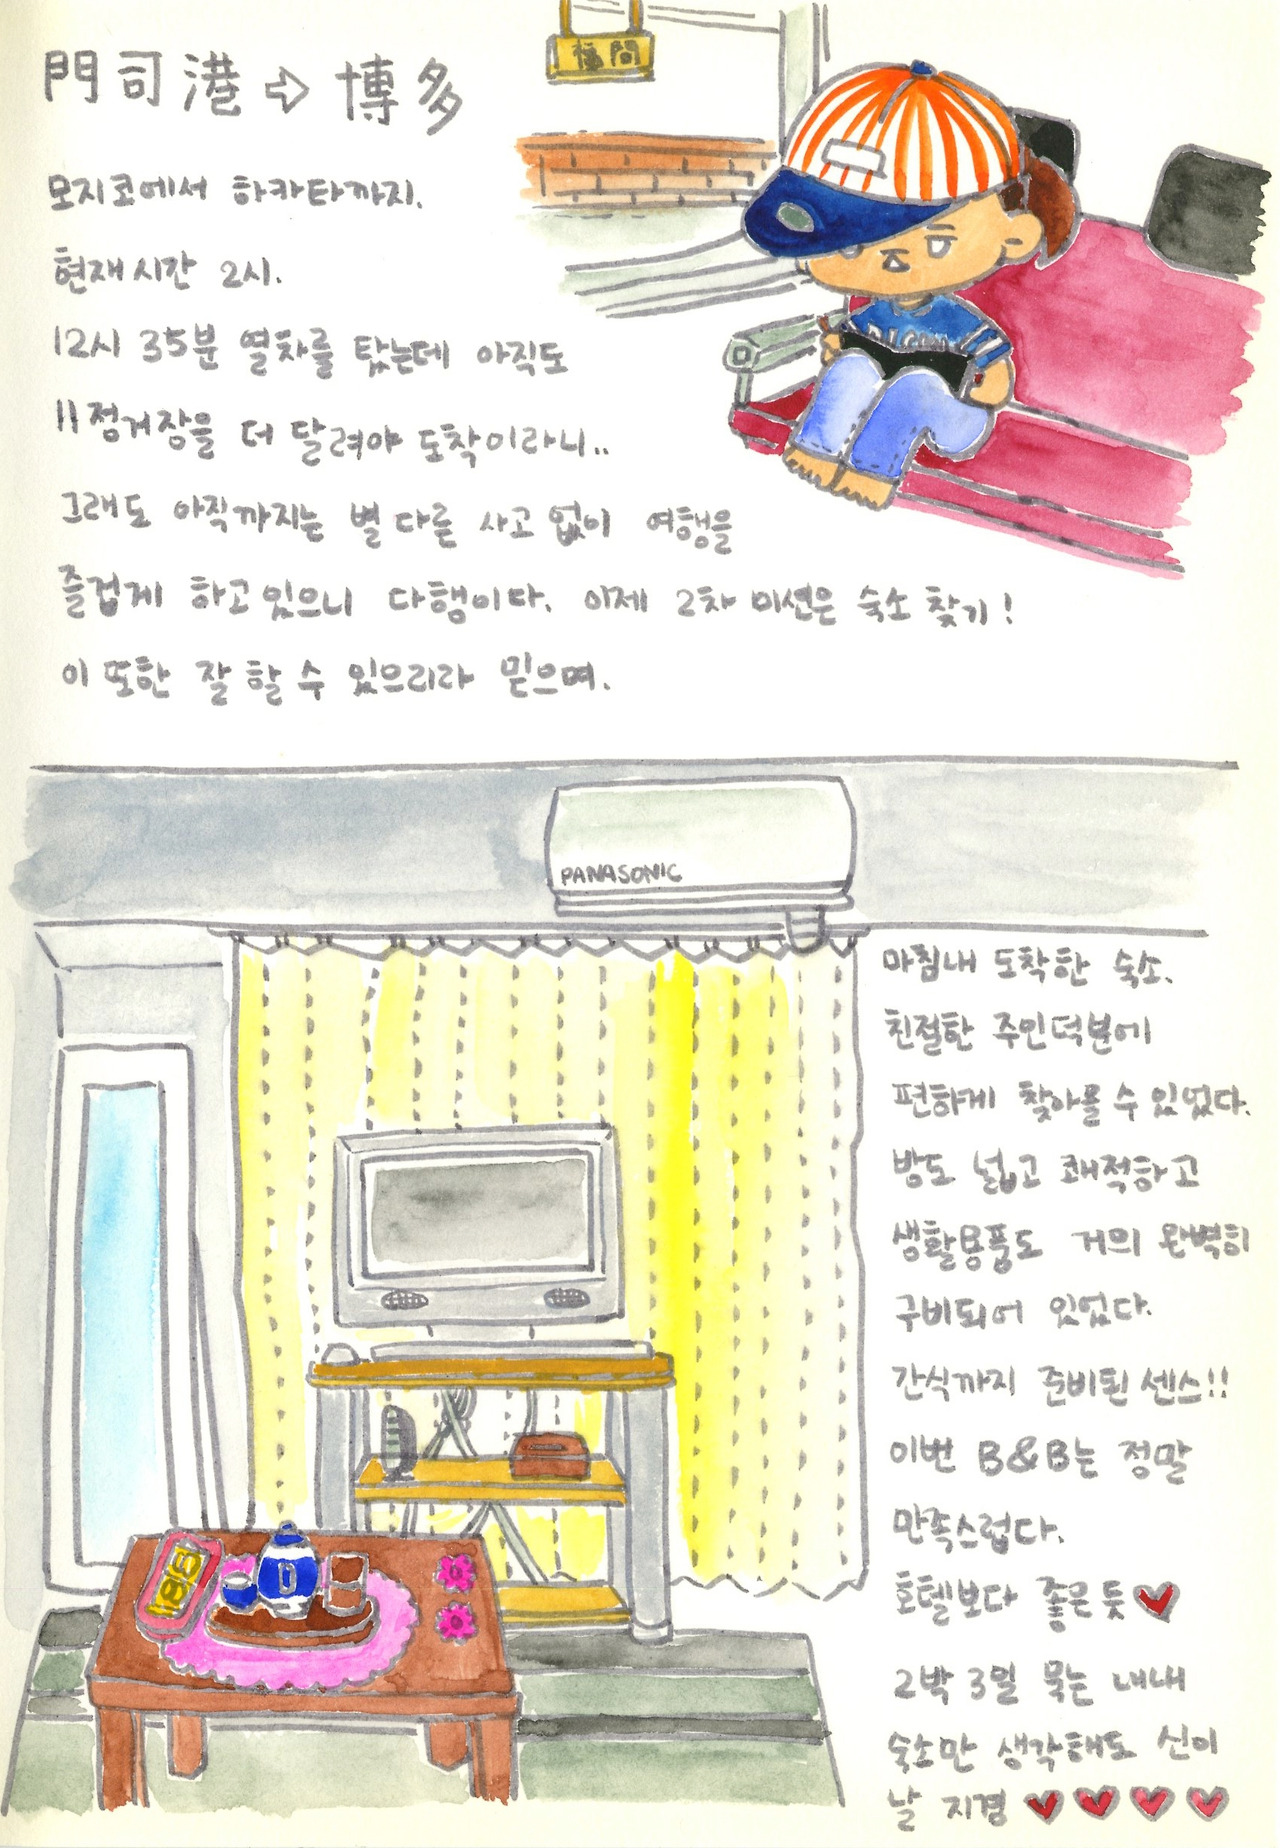 門司港 ⇨ 博多
모지코에서 하카타까지.
현재시간 2시.
12시 35분 열차를 탔는데 아직도
11정거장을 더 달려야 도착이라니..
그래도 아직까지는 별 다른 사고 없이 여행을
즐겁게 하고 있으니 다행이다. 이제 2차 미션은 숙소 찾기!
이 또한 잘 할 수 있으리라 믿으며.
PANASONIC
마침내 도착한 숙소.
친절한 주인덕분에
편하게 찾아올 수 있었다.
방도 넓고 쾌적하고
생활용품도 거의 완벽히
구비되어 있었다.
간식까지 준비된 센스!!
이번 B&B는 정말
만족스럽다.
호텔보다 좋은듯 ♥
2박 3일 묵는 내내
숙소만 생각해도 신이
날 지경 ♥♥♥♥